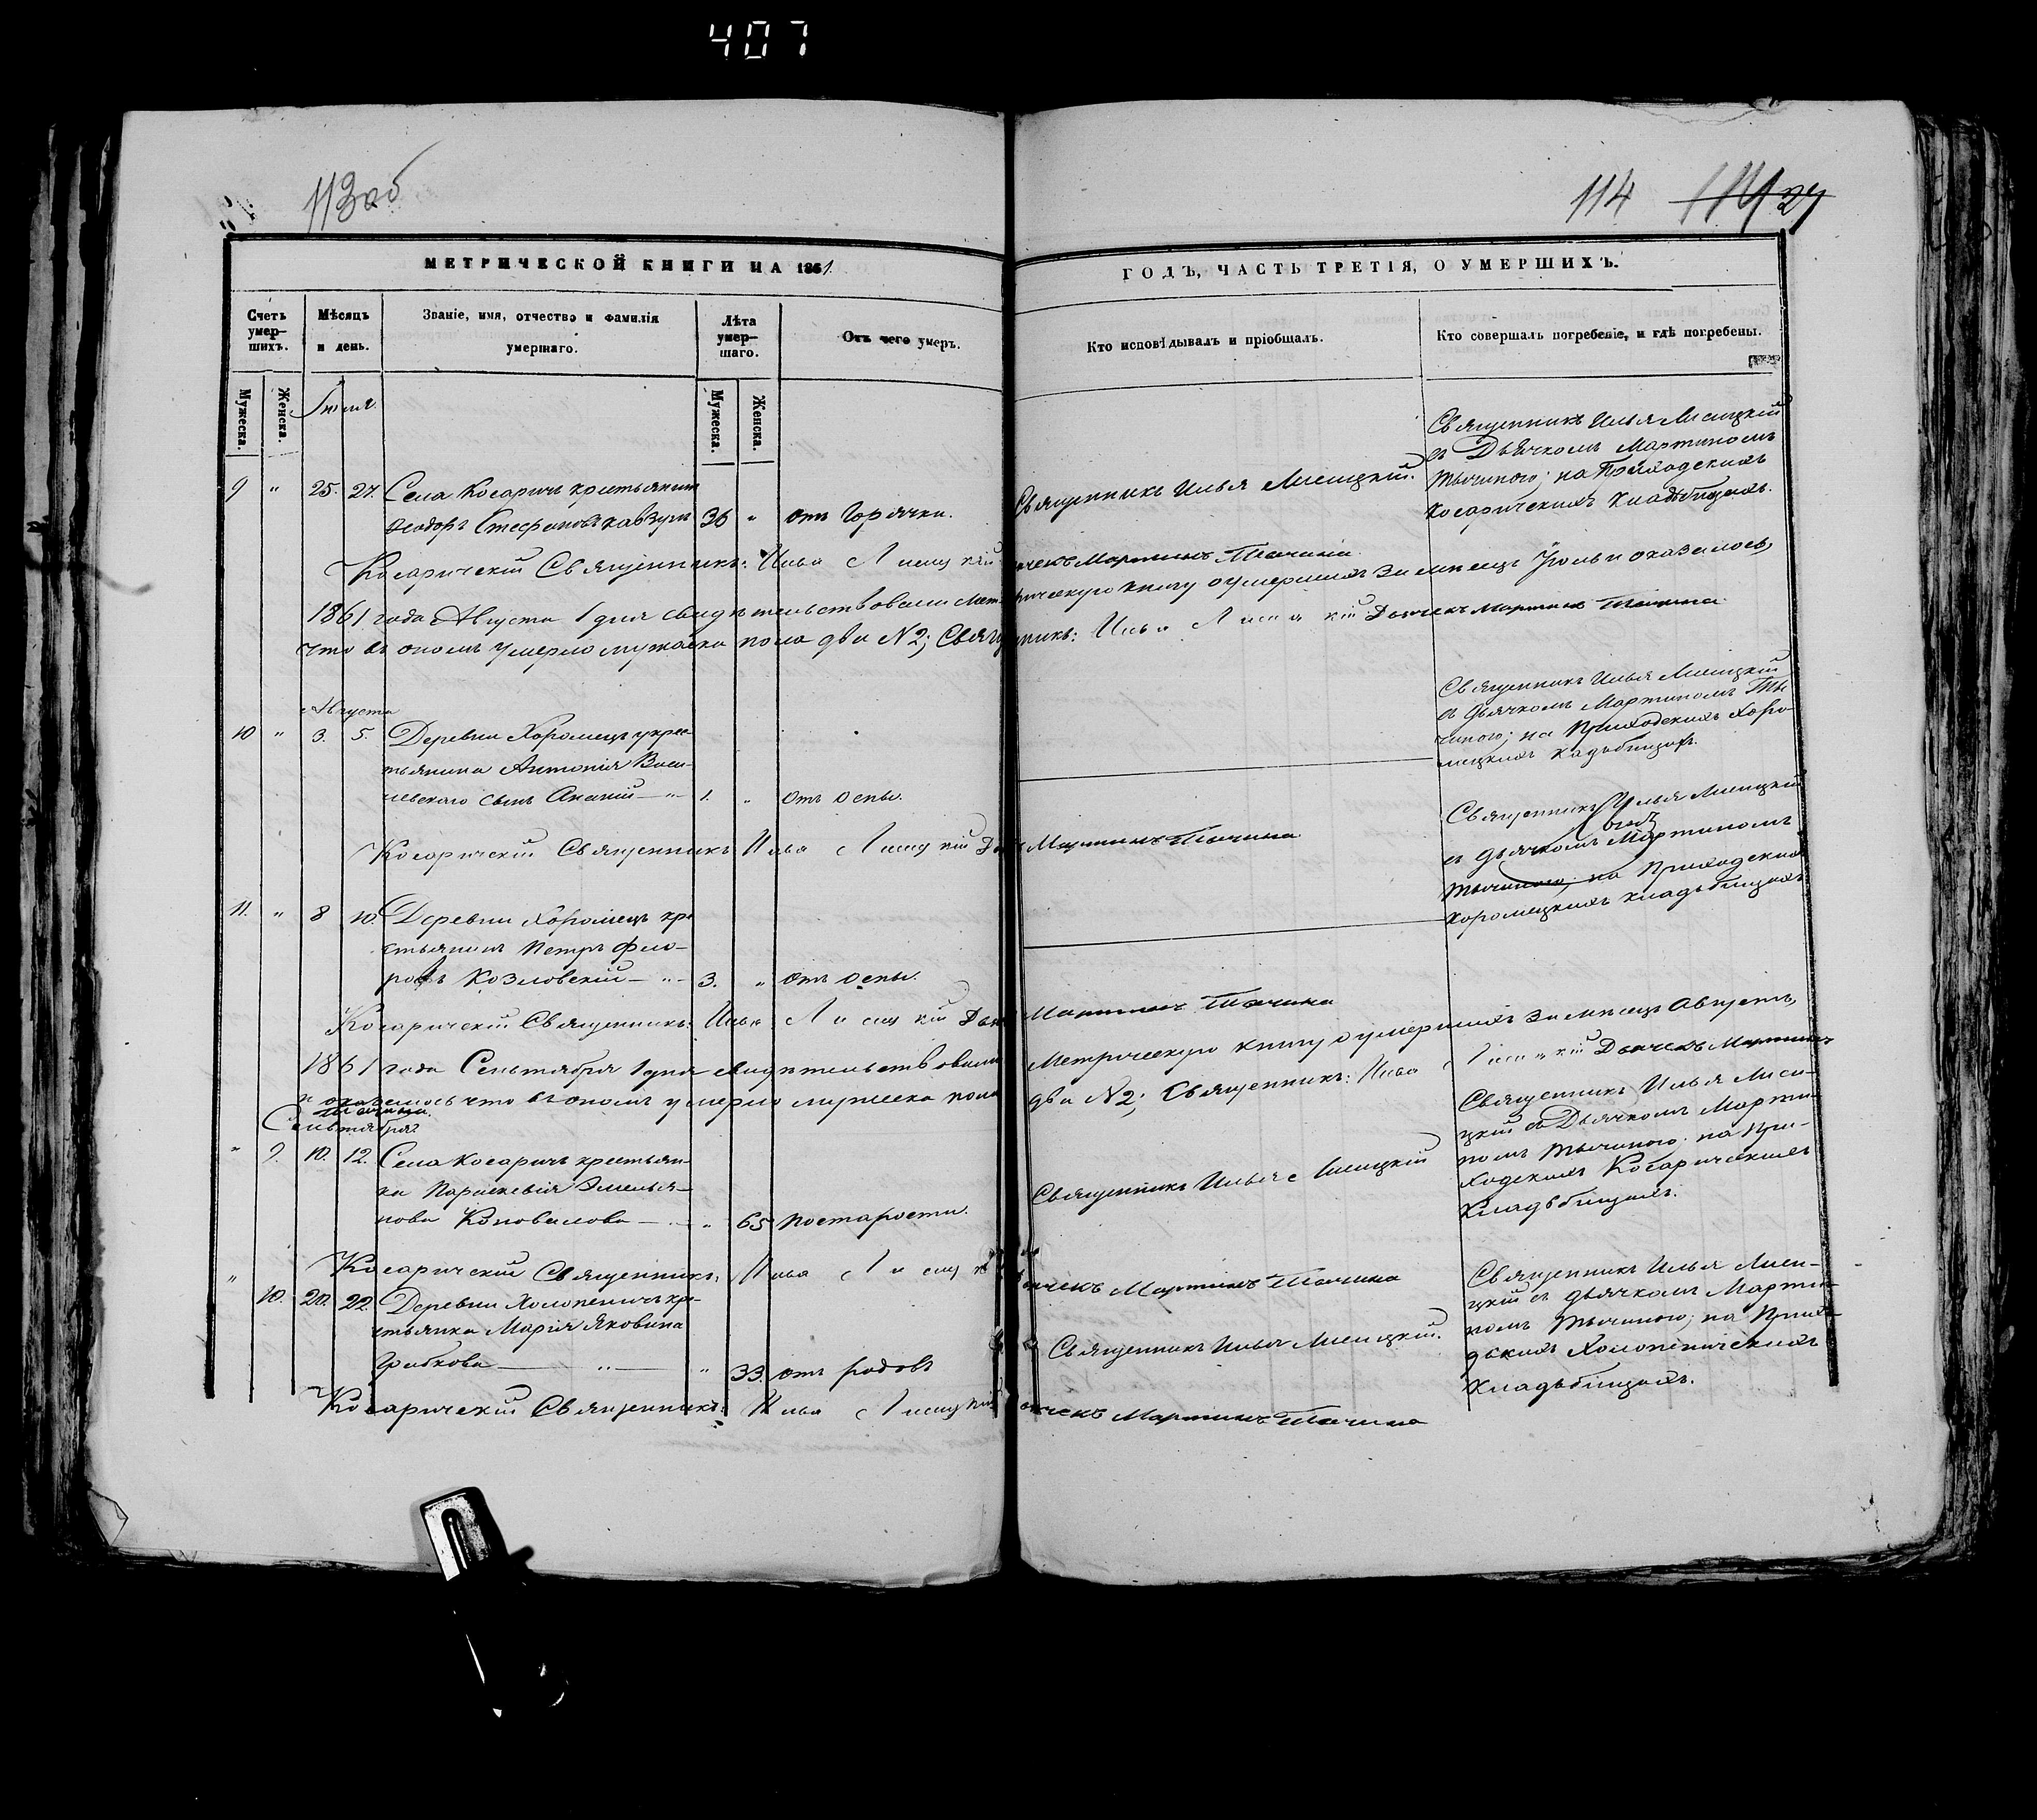 407
113об
114
МЕТРИЧЕСКОЙ КНИГИ НА 1861
ГОДЪ, ЧАСТЬ ТРЕТІЯ, О УМЕРШИХЪ.
Счетъ умер-шихъ.
Мѣсяцъ и день.
Званіе, имя, отчество и фамилія умершаго.
Лѣта умер-шаго.
Отъ чего умеръ.
Кто исповѣдывалъ и пріобщалъ.
Кто совершалъ погребеніе, и гдѣ погребены.
Мужеска.
Женска.
Мужеска.
Женска.
9 " 25. 27. Села Косаричъ крестьянинъ
Ѳеодоръ Стефановъ 36 " отъ горячки.
Священникъ Илья Лисицкій.
Священникъ Илья Лисицкій
съ Дьячкомъ Мартиномъ
Тычиною; на Приходскихъ
Косаричскихъ кладбищахъ.
Косаричскій Священникъ: Илья Лисицкій Мартинъ Тычина
1861 года Августа 1 дня свидѣтельствовали Метрическую книгу о умершихъ за мѣсяцъ Іюль и оказалось,
что въ ономъ умерло мужеска пола два №2; Священникъ: Илья Лисицкій Дьячекъ Мартинъ Тычина
Августа
10 " 3. 5. Деревни Хоромецъ у крес-
тьянина Антонія Васи-
левскаго сынъ Ананій — " — 1. " отъ оспы.
Священникъ Илья Лисицкій
съ дьячкомъ Мартиномъ Ты-
чиною; на Приходскихъ Хоро-
мецкихъ кладбищахъ.
Косаричскій Священникъ Илья Лисицкій Мартинъ Тычина
11. " 8 10. Деревни Хоромецъ кре
стьянинъ Петръ Фло-
ровъ Козловскій — " — 3. " отъ оспы.
Священникъ Илья Лисицкій
съ дьячкомъ Мартиномъ
Тычиною; на Приходскихъ
Хоромецкихъ кладьбищахъ
Косаричскій Священникъ: Илья Лисицкій Мартинъ Тычина
1861 года Сентября 1 дня свидѣтельствовали Метрическую книгу о умершихъ за мѣсяцъ Августъ,
и оказалось что въ ономъ умерло мужеска пола два №2; Священникъ: Илья Лисицкій Дьячекъ Мартинъ
Тычина.
Сентября
" 9. 10. 12. Села Косаричъ крестьян-
ка Параскевія Емелья-
нова Коновалова — " 65 по старости.
Священникъ Илья Лисицкій
Священникъ Илья Лиси-
цкій съ Дьячкомъ Марти-
номъ Тычиною; на При-
ходскихъ Косаричскихъ
Кладьбищахъ.
Косаричскій Священникъ: Илья Лисицкій Мартинъ Тычина
" 10. 20. 22. Деревни Холопеничъ кре-
стьянка Марія Яковина
Грибкова — " — " 33. отъ родовъ
Священникъ Илья Лисицкій.
Священникъ Илья Лиси-
цкій съ дьячкомъ Марти-
номъ Тычиною; на Прихо-
дскихъ Холопеничскихъ
Кладьбищахъ.
Косаричскій Священникъ: Илья Лисицкій Мартинъ Тычина